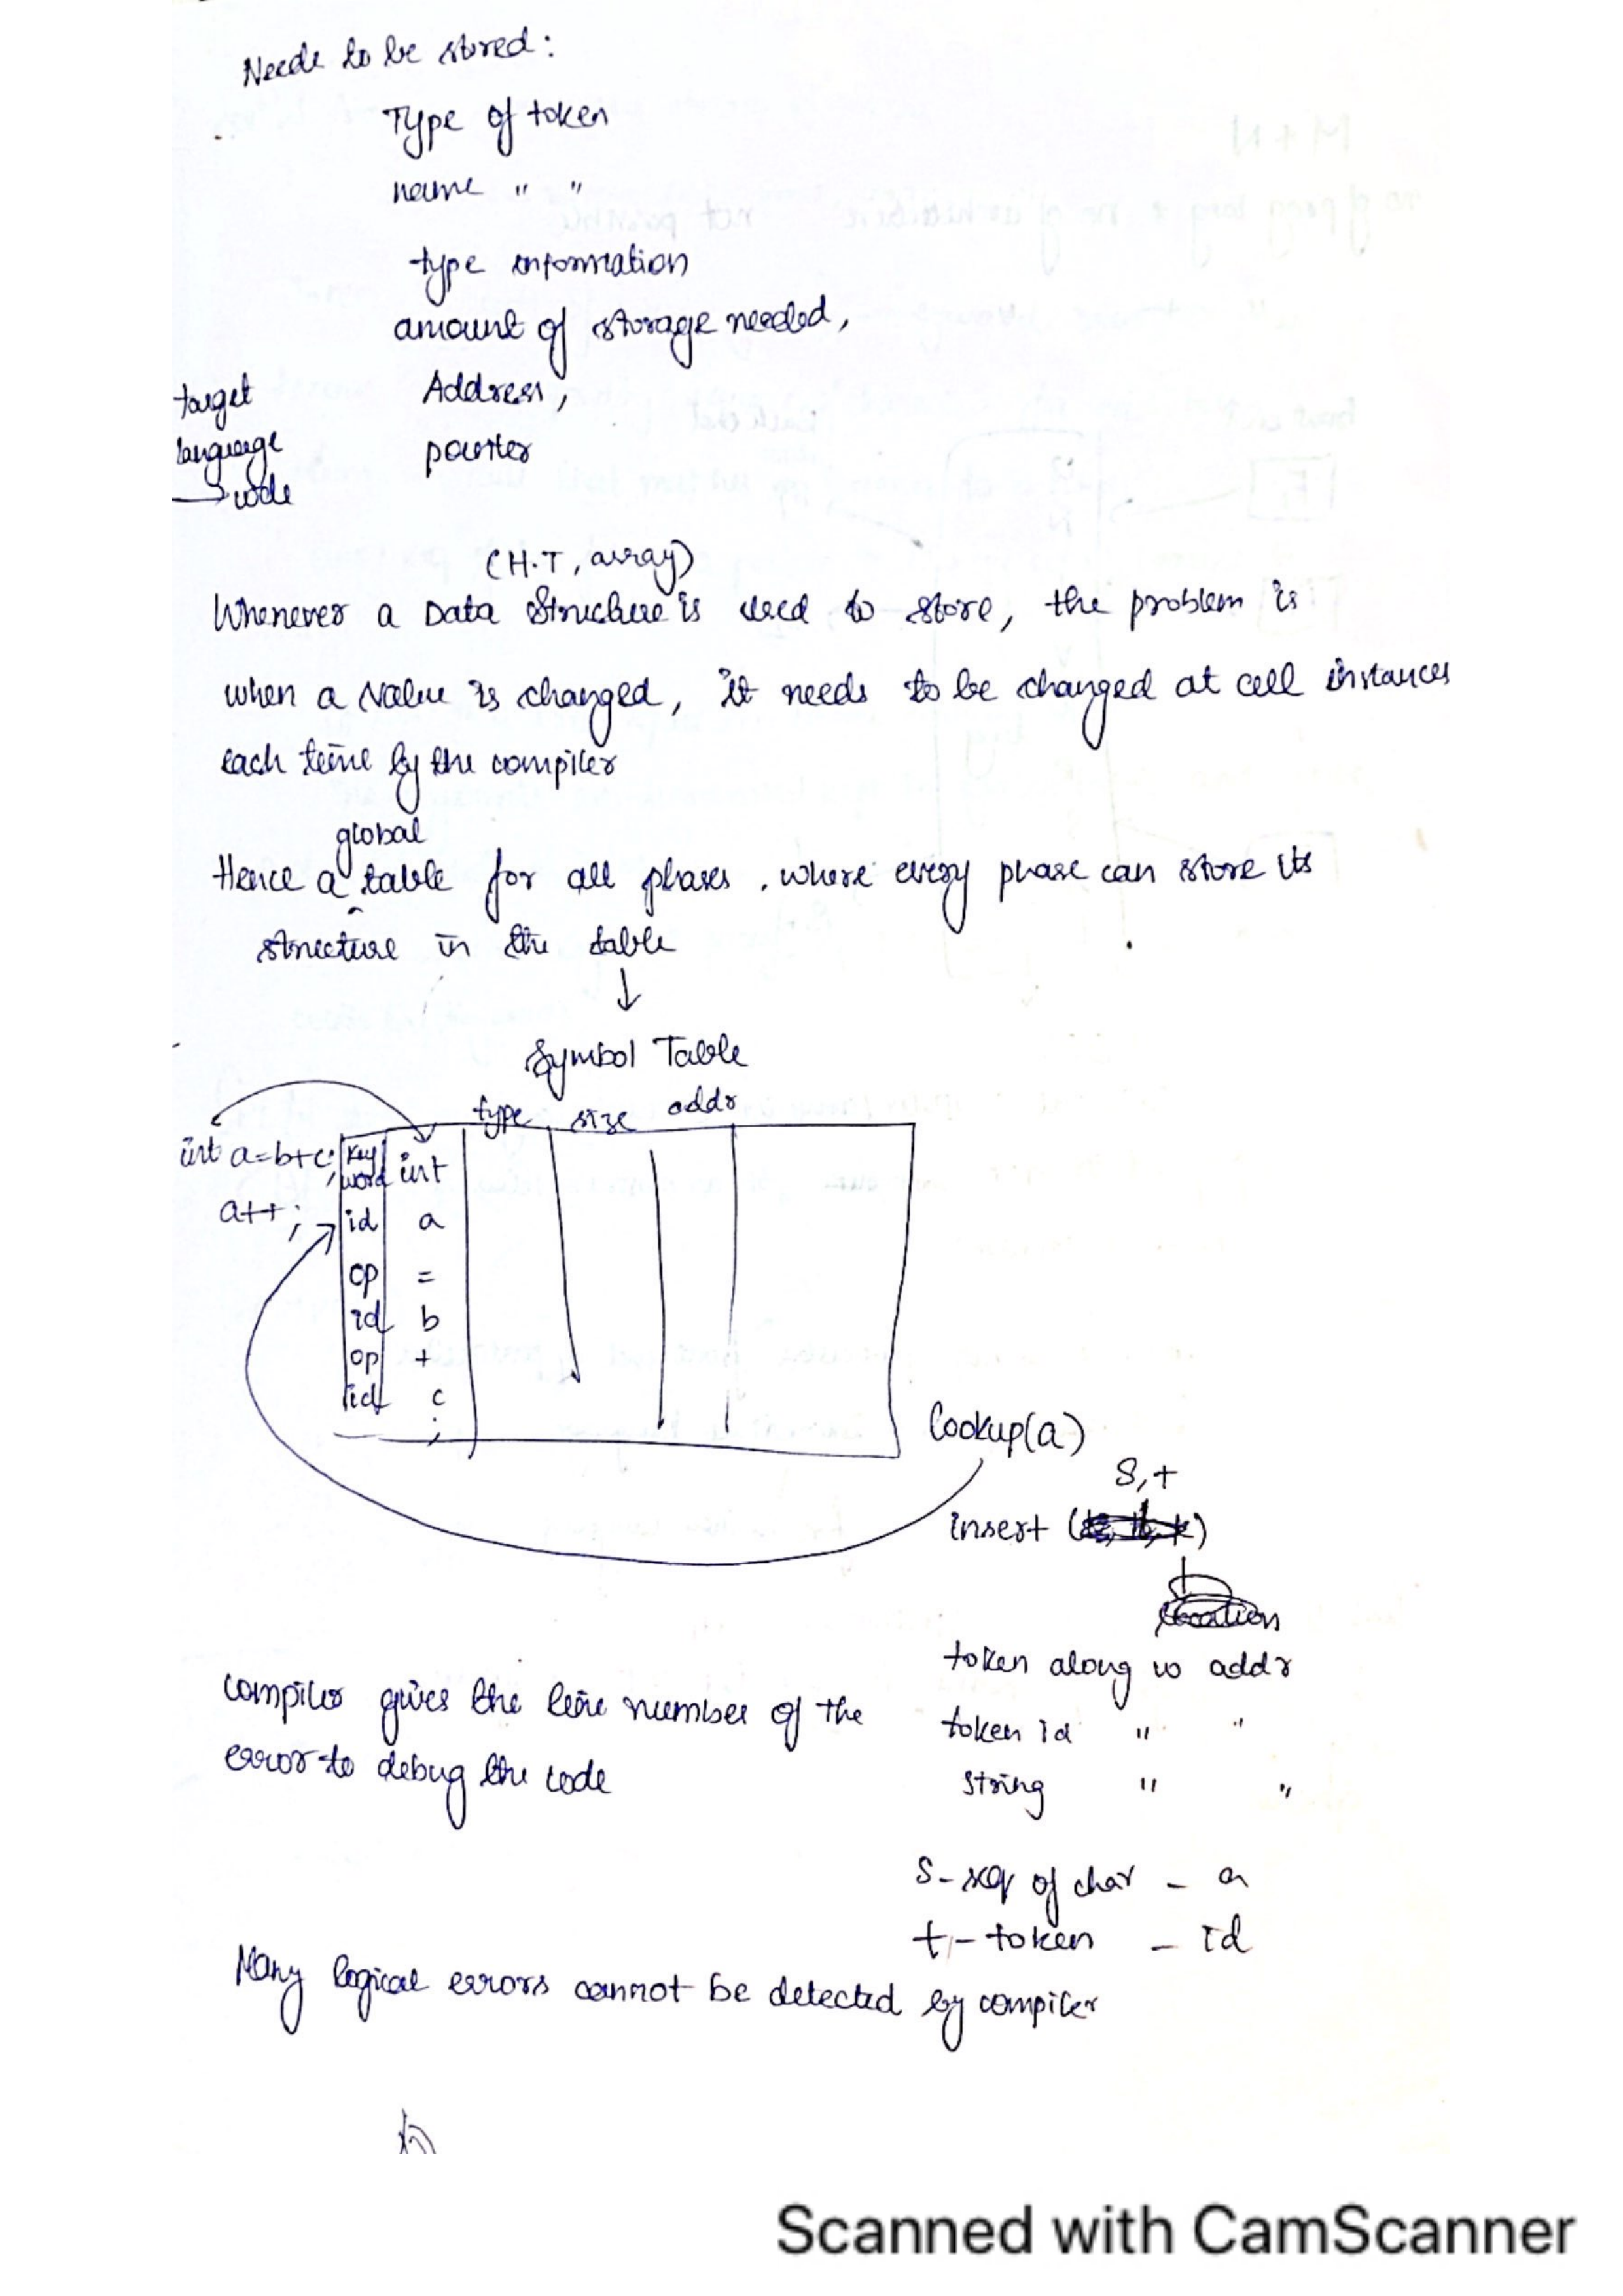 Needs to be stored:
Type of token
name " "
type information
amount of storage needed,
target Address,
language pointer
→ code
(H.T, array)
Whenever a Data Structure is used to store, the problem is
when a value is changed, it needs to be changed at all instances
each time by the compiler
global
Hence a ^ table for all phases, where every phase can store its
structure in the table
↓
Symbol Table
type size addr
int a=b+c; key word int
a++; id a
op =
id b
op +
id c
;
Lookup(a)
S,t
insert ( )
token along w addr
token id " "
string " "
compiler gives the line number of the
error to debug the code
S - seq of char - a
t - token - id
Many logical errors cannot be detected by compiler
Scanned with CamScanner